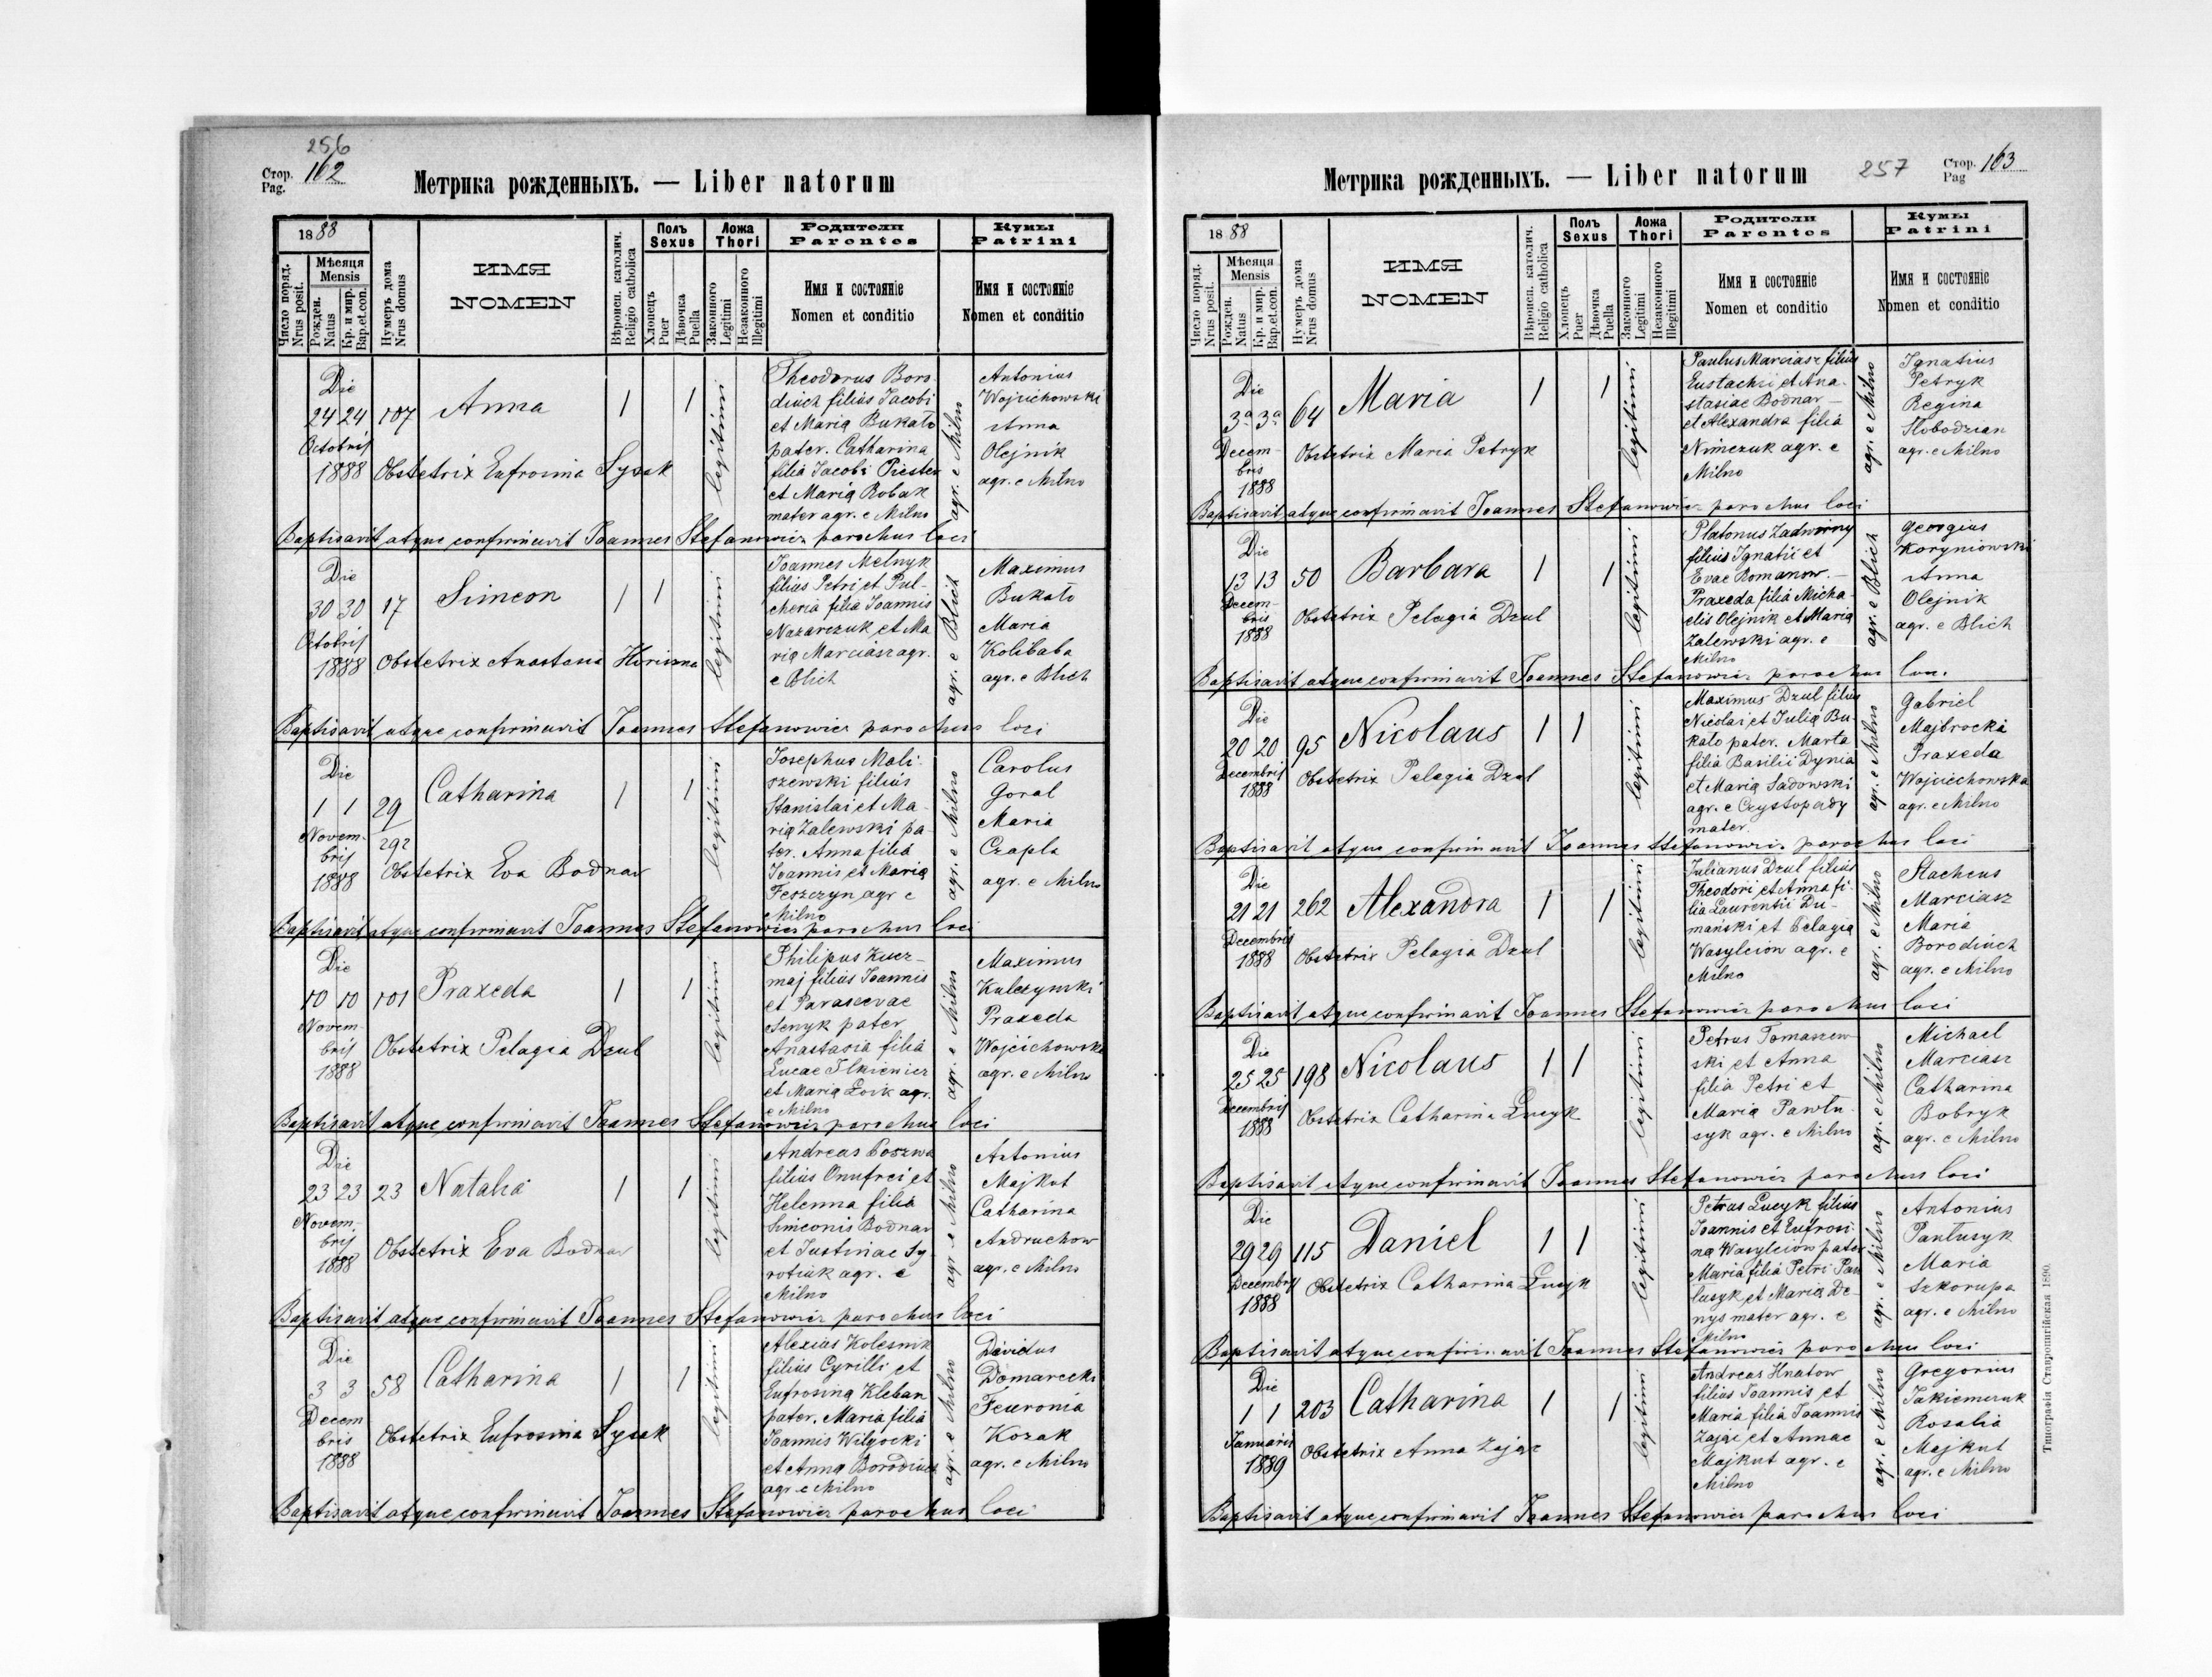 256
Стор. Pag. 162
Метрика рожденныхъ. — Liber natorum
1888
Число поряд. Nrus posit.
Мѣсяця Mensis
Рожден. Natus
Кр. и мир. Bap. et. con.
Нумеръ дома Nrus domus
ИМЯ
NOMEN
Вѣроисп. католич. Religio catholica
Полъ Sexus
Хлопецъ Puer
Дѣвочка Puella
Ложа Thori
Законного Legitimi
Незаконного Illegitimi
Родители Parentes
Имя и состояніе
Nomen et conditio
Кумы Patrini
Имя и состояніе
Nomen et conditio
Die
24 24 107 Anna 1 1 legitimi
Octobris
1888 Obstetrix Eufrosina Sysak
Theodorus Boro-
diuch filius Jacobi
et Maria Bukato
pater. Catharina
filia Jacobi Piester
et Maria Robak
mater agr. e Milno
agr. e Milno
Antonius
Wojcichowski
Anna
Olejnik
agr. e Milno
Baptisavit atque confirmavit Joannes Stefanowicz parochus loci
Die
30 30 17 Simeon 1 1 legitimi
Octobris
1888 Obstetrix Anastasia
Joannes Melnyk
filius Petri et Pul-
cheria filia Joannis
Nazarczuk et Ma
ria Marciasz agr.
e Blich
agr. e Blich
Maximus
Bukato
Maria
Kolibaba
agr. e Blich
Baptisavit atque confirmavit Joannes Stefanowicz parochus loci
Die
1 1 29 Catharina 1 1 legitimi
Novem-
bris 292
1888 Obstetrix Eva Bodnar
Josephus Mali-
szewski filius
Stanislai et Ma-
ria Zalewski pa-
ter. Anna filia
Joannis et Maria
Feszczyn agr e
Milno
agr. e Milno
Carolus
Goral
Maria
Czapla
agr. e Milno
Baptisavit atque confirmavit Joannes Stefanowicz parochus loci
Die
10 10 101 Praxeda 1 1 legitimi
Novem-
bris Obstetrix Pelagia Dzul
1888
Philipus Kucz-
maj filius Joannis
et Parascevae
Senyk pater
Anastasia filia
Lucae Ilkienicz
et Maria Zoik agr.
e Milno
agr. e Milno
Maximus
Kulczynski
Praxeda
Wojcichowska
agr. e Milno
Baptisavit atque confirmavit Joannes Stefanowicz parochus loci
Die
23 23 23 Natalia 1 1 legitimi
Novem-
bris Obstetrix Eva Bodnar
1888
Andreas Poszwa
filius Onufrei et
Helenna filia
Simeonis Bodnar
et Justinae Sy-
rotiuk agr. e
Milno
agr. e Milno
Antonius
Majkut
Catharina
Andruchow
agr. e Milno
Baptisavit atque confirmavit Joannes Stefanowicz parochus loci
Die
3 3 58 Catharina 1 1 legitimi
Decem
bris Obstetrix Eufrosina Sysak
1888
Alexius Kolesnik
filius Cyrilli et
Eufrosina Kleban
pater. Maria filia
Joannis Wilgocki
et Anna Borodiuch
agr e Milno
agr. e Milno
Davidus
Domarecki
Feuronia
Kozak
agr. e Milno
Baptisavit atque confirmavit Joannes Stefanowicz parochus loci
Метрика рожденныхъ. — Liber natorum
257
Стор. Pag 163
1888
Число поряд. Nrus posit.
Мѣсяця Mensis
Рожден. Natus
Кр. и мир. Bap. et. con.
Нумеръ дома Nrus domus
ИМЯ
NOMEN
Вѣроисп. католич. Religio catholica
Полъ Sexus
Хлопецъ Puer
Дѣвочка Puella
Ложа Thori
Законного Legitimi
Незаконного Illegitimi
Родители Parentes
Имя и состояніе
Nomen et conditio
Кумы Patrini
Имя и состояніе
Nomen et conditio
Die
3a 3a 64 Maria 1 1 legitimi
Decem-
bris Obstetrix Maria Petryk
1888
Paulus Marciasz filius
Eustachii et Ana-
stasiae Bodnar —
et Alexandra filia
Nimczuk agr. e
Milno
agr. e Milno
Ignatius
Petryk
Regina
Slobodzian
agr. e Milno
Baptisavit atque confirmavit Joannes Stefanowicz parochus loci
Die
13 13 50 Barbara 1 1 legitimi
Decem-
bris Obstetrix Pelagia Dzul
1888
Platonus Zadworny
filius Ignatii et
Evae Romanow. —
Praxeda filia Micha-
elis Olejnik et Maria
Zalewski agr. e
Milno
agr. e Blich
Georgius
Koryniowski
Anna
Olejnik
agr. e Blich
Baptisavit atque confirmavit Joannes Stefanowicz parochus loci.
Die
20 20 95 Nicolaus 1 1 legitimi
Decembris
1888 Obstetrix Pelagia Dzul
Maximus Dzul filius
Nicolai et Julia Bu-
kato pater. Marta
filia Basilii Dynia
et Maria Sadowski
agr. e Czystopady
mater.
agr. e Milno
Gabriel
Majbrocki
Praxeda
Wojciechowska
agr. e Milno
Baptisavit atque confirmavit Joannes Stefanowicz parochus loci
Die
21 21 262 Alexandra 1 1 legitimi
Decembris
1888 Obstetrix Pelagia Dzul
Julianus Dzul filius
Theodori et Anna fi-
lia Laurentii Du-
manski et Pelagia
Wasylciow agr. e
Milno
agr. e Milno
Stacheus
Marciasz
Maria
Borodiuch
agr. e Milno
Baptisavit atque confirmavit Joannes Stefanowicz parochus loci
Die
25 25 198 Nicolaus 1 1 legitimi
Decembris
1888 Obstetrix Catharina Lucyk
Petrus Tomaszew
ski et Anna
filia Petri et
Maria Pawlu-
syk agr. e Milno
agr. e Milno
Michael
Marciasz
Catharina
Bobryk
agr. e Milno
Baptisavit atque confirmavit Joannes Stefanowicz parochus loci
Die
29 29 115 Daniel 1 1 legitimi
Decembris
1888 Obstetrix Catharina Lucyk
Petrus Lucyk filius
Joannis et Eufrosi-
na Wasylciow pater
Maria filia Petri Paw
lusyk et Maria De-
nys mater agr. e
Milno
agr. e Milno
Antonius
Pawlusyk
Maria
Szkorupa
agr. e Milno
Baptisavit atque confirmavit Joannes Stefanowicz parochus loci
Die
1 1 203 Catharina 1 1 legitimi
Januaris
1889 Obstetrix Anna Zajac
Andreas Hnatow
filius Joannis et
Maria filia Joannis
Zajac et Annae
Majkut agr. e
Milno
agr. e Milno
Gregorius
Jakiemczuk
Rosalia
Majkut
agr. e Milno
Baptisavit atque confirmavit Joannes Stefanowicz parochus loci
Типографія Ставропигійская 1890.